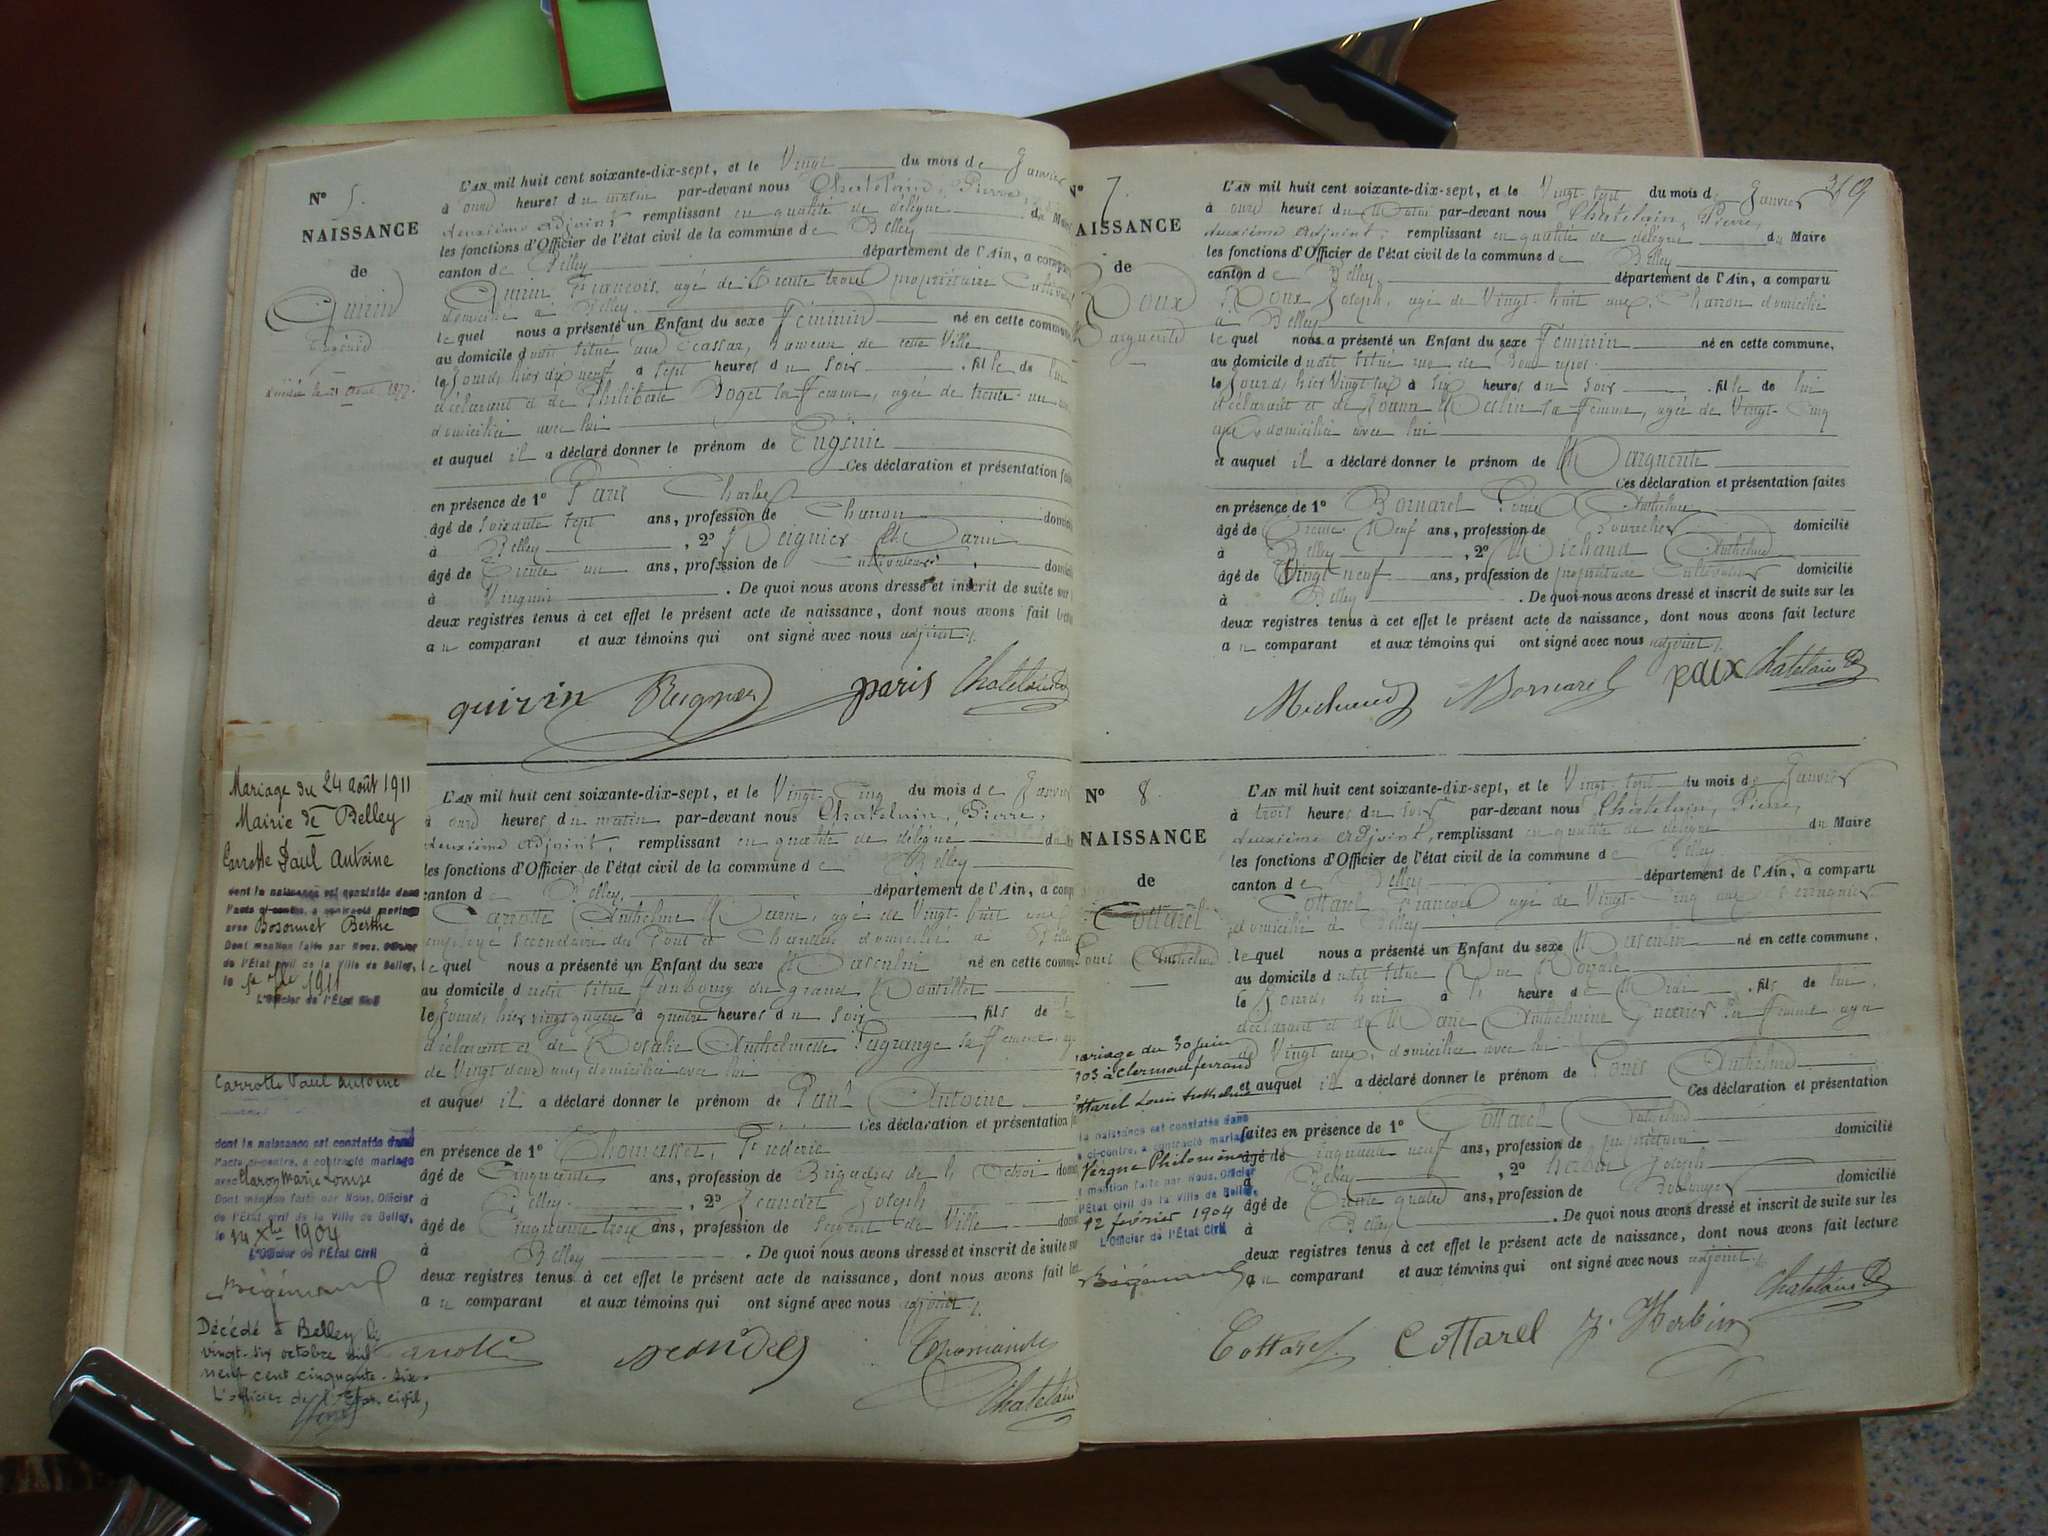 N° 5.
NAISSANCE
de
Quirin
Eugénie
L'AN mil huit cent soixante-dix-sept, et le Vingt du mois de Janvier
à onze heures du matin par-devant nous Chatelain, Pierre,
deuxième adjoint remplissant en qualité de délégué du Maire
les fonctions d'Officier de l'état civil de la commune de Belley
canton de Belley département de l'Ain, a comparu
Quirin François, agé de trente trois propriétaire Cultivateur
domicilié à Belley.
lequel nous a présenté un Enfant du sexe Féminin né en cette commune
au domicile dudit situé aux Ecassaz, hameau de cette Ville
le jourd, hier dix neuf à sept heures du soir fille de lui
déclarant et de Philiberte Poget sa Femme, agée de trente-un ans
domiciliée avec lui
et auquel il a déclaré donner le prénom de Eugénie
Ces déclaration et présentation faites
en présence de 1° Paris Charles
âgé de soixante sept ans, profession de Charron
à Belley, 2° Reignier Marin
âgé de Trente un ans, profession de Cultivateur,
à Virignin. De quoi nous avons dressé et inscrit de suite sur
deux registres tenus à cet effet le présent acte de naissance, dont nous avons fait lecture
au comparant et aux témoins qui ont signé avec nous adjoint.
quirin Reignier paris Chatelain
Mariage du 24 août 1911
Mairie de Belley
Carrotte Paul Antoine
dont la naissance est constatée dans
l'acte ci-contre, a contracté mariage
avec Bosonnet Berthe
Dont mention faite par Nous, Officier
de l'État civil de la Ville de Belley,
le 1911
L'Officier de l'État Civil
Carrotte Paul Antoine
dont la naissance est constatée dans
l'acte ci-contre, a contracté mariage
avec Claron Marie Louise
Dont mention faite par Nous, Officier
de l'État civil de la Ville de Belley,
le 14 Xbre 1904
L'Officier de l'État Civil
Décédé à Belley le
vingt-six octobre mil
neuf cent cinquante-six.
L'officier de l'Etat civil,
L'AN mil huit cent soixante-dix-sept, et le Vingt-Cinq du mois de Janvier
à onze heures du matin par-devant nous Chatelain, Pierre,
deuxième adjoint, remplissant en qualité de délégué
les fonctions d'Officier de l'état civil de la commune de Belley
canton de Belley, département de l'Ain, a comparu
Carrotte Anthelme Marin, agé de Vingt-huit ans
employé secondaire des Ponts et Chaussées domicilié à Belley
lequel nous a présenté un Enfant du sexe Masculin né en cette commune
au domicile dudit situé Faubourg du grand
le jourd, hier vingt quatre à quatre heures du soir fils de
déclarant et de Rosalie Anthelmette Lagrange sa Femme,
de Vingt deux ans, domiciliée avec lui
et auquel il a déclaré donner le prénom de Paul Antoine
Ces déclaration et présentation
en présence de 1° Thomasset, Frédéric
âgé de Cinquante ans, profession de Brigadier de l'Octroi
à Belley, 2° Jeandet Joseph
âgé de Cinquante trois ans, profession de Sergent de Ville
à Belley. De quoi nous avons dressé et inscrit de suite sur
deux registres tenus à cet effet le présent acte de naissance, dont nous avons fait
au comparant et aux témoins qui ont signé avec nous adjoint.
Chatelain
N° 7.
NAISSANCE
de
Roux
Marguerite
369
L'AN mil huit cent soixante-dix-sept, et le Vingt-sept du mois de Janvier
à onze heures du Matin par-devant nous Chatelain, Pierre,
deuxième adjoint, remplissant en qualité de délégué du Maire
les fonctions d'Officier de l'état civil de la commune de Belley
canton de Belley département de l'Ain, a comparu
Roux Joseph, agé de Vingt-huit ans, Charron domicilié
à Belley
lequel nous a présenté un Enfant du sexe Féminin né en cette commune,
au domicile dudit situé rue de
le jourd, hier Vingt six à six heures du soir fille de lui
déclarant et de Merlin sa Femme, agée de Vingt-Cinq
ans domiciliée avec lui
et auquel il a déclaré donner le prénom de Marguerite
Ces déclaration et présentation faites
en présence de 1° Bornarel Anthelme
âgé de Trente Neuf ans, profession de Bourrelier domicilié
à Belley, 2° Michaud Anthelme
âgé de Vingt-neuf ans, profession de propriétaire Cultivateur domicilié
à Belley. De quoi nous avons dressé et inscrit de suite sur les
deux registres tenus à cet effet le présent acte de naissance, dont nous avons fait lecture
au comparant et aux témoins qui ont signé avec nous adjoint.
Michaud Bornarel roux Chatelain
N° 8.
NAISSANCE
de
Cottarel
Louis Anthelme
mariage du 30 juin
1903 à Clermont ferrand
Cottarel Louis Anthelme
la naissance est constatée dans
ci-contre, a contracté mariage
Vergne Philomène
mention faite par Nous, Officier
l'État civil de la Ville de Belley,
12 février 1904
L'Officier de l'État Civil
L'AN mil huit cent soixante-dix-sept, et le Vingt-sept du mois de Janvier
à trois heures du soir par-devant nous Chatelain, Pierre,
deuxième adjoint, remplissant en qualité de délégué du Maire
les fonctions d'Officier de l'état civil de la commune de Belley
canton de Belley département de l'Ain, a comparu
Cottarel François agé de Vingt-Cinq ans
domicilié à Belley
lequel nous a présenté un Enfant du sexe Masculin né en cette commune,
au domicile dudit situé Rue Royale
le jourd, hui à heure de fils de lui,
déclarant et de Marie Anthelmine sa Femme agée
de Vingt ans, domiciliée avec lui
et auquel il a déclaré donner le prénom de Louis Anthelme
Ces déclaration et présentation
faites en présence de 1° Cottarel Anthelme
âgé de Cinquante neuf ans, profession de domicilié
à Belley, 2° Herbin Joseph
âgé de Trente quatre ans, profession de Boulanger domicilié
à Belley. De quoi nous avons dressé et inscrit de suite sur les
deux registres tenus à cet effet le présent acte de naissance, dont nous avons fait lecture
au comparant et aux témoins qui ont signé avec nous adjoint.
Chatelain
Cottarel Cottarel J. Herbin